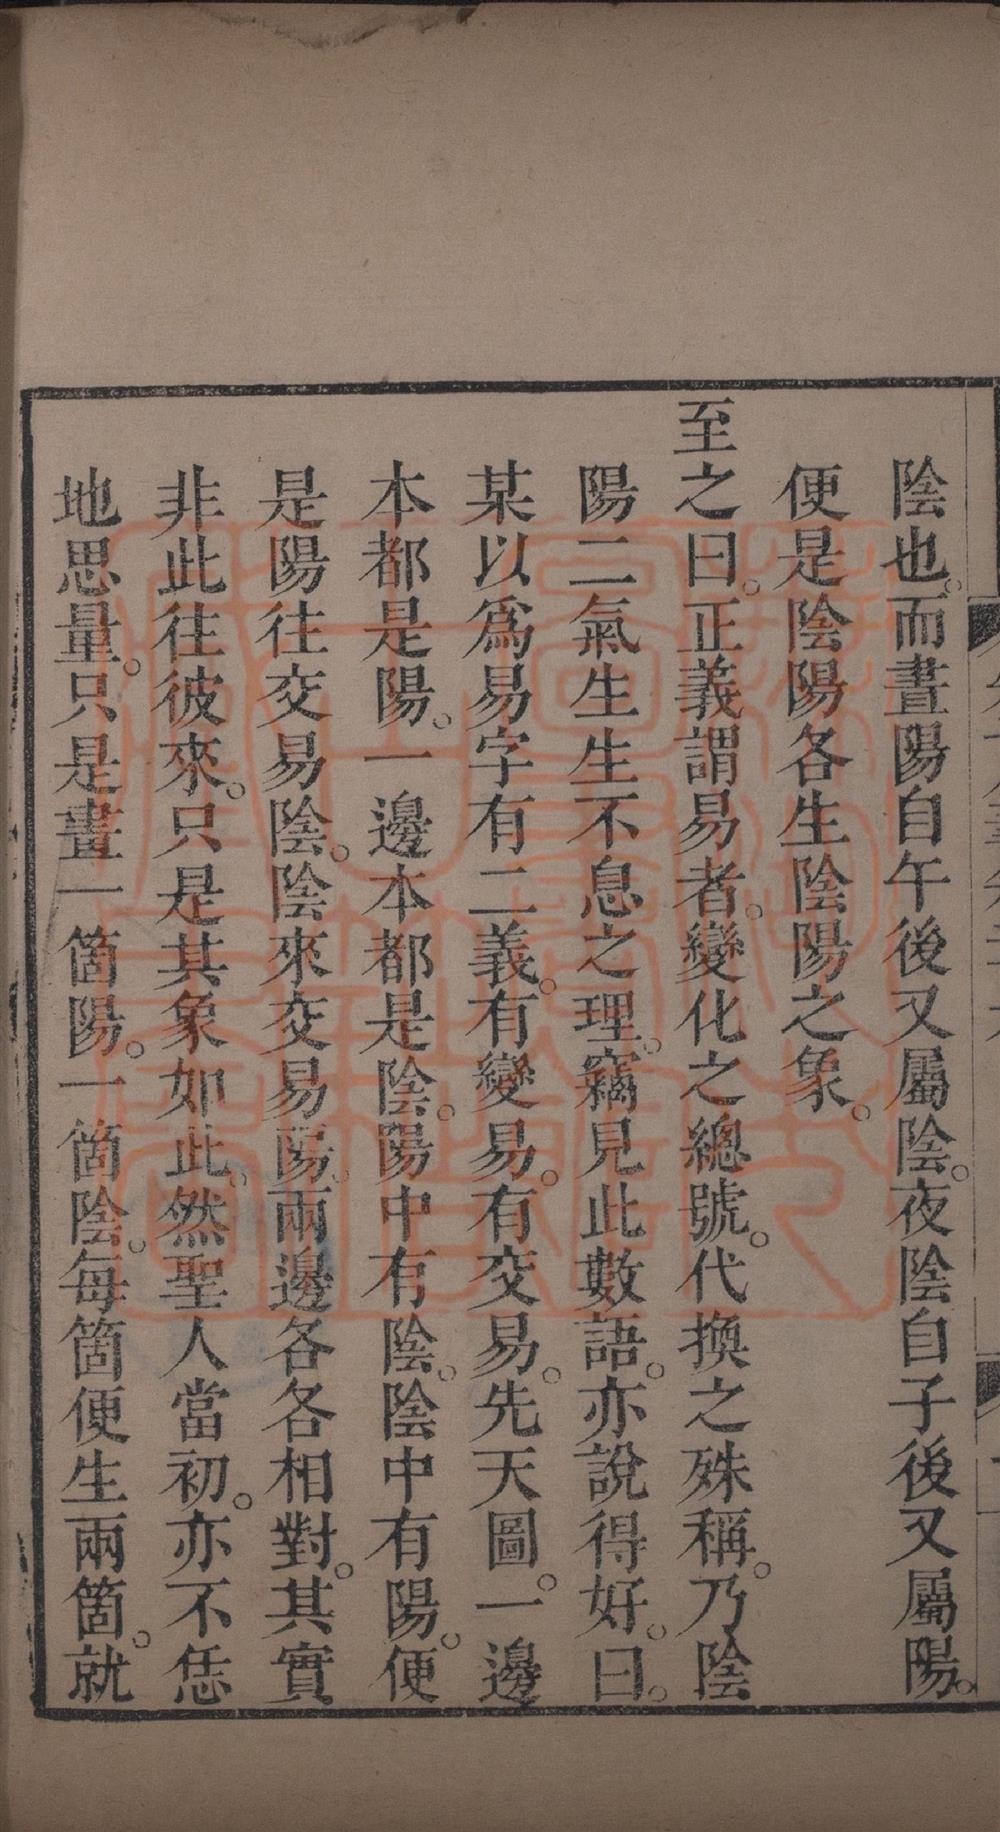 陰也。而晝陽自午後又屬陰。夜陰自子後又屬陽。
便是陰陽各生陰陽之象。
至之曰。正義謂易者。變化之總號。代換之殊稱。乃陰
陽二氣生生不息之理。竊見此數語。亦說得好。曰。
某以爲易字有二義。有變易。有交易。先天圖。一邊
本都是陽。一邊本都是陰。陽中有陰。陰中有陽。便
是陽往交易陰。陰來交易陽。兩邊各各相對。其實
非此往彼來。只是其象如此。然聖人當初。亦不恁
地思量。只是畫一箇陽。一箇陰。每箇便生兩箇。就